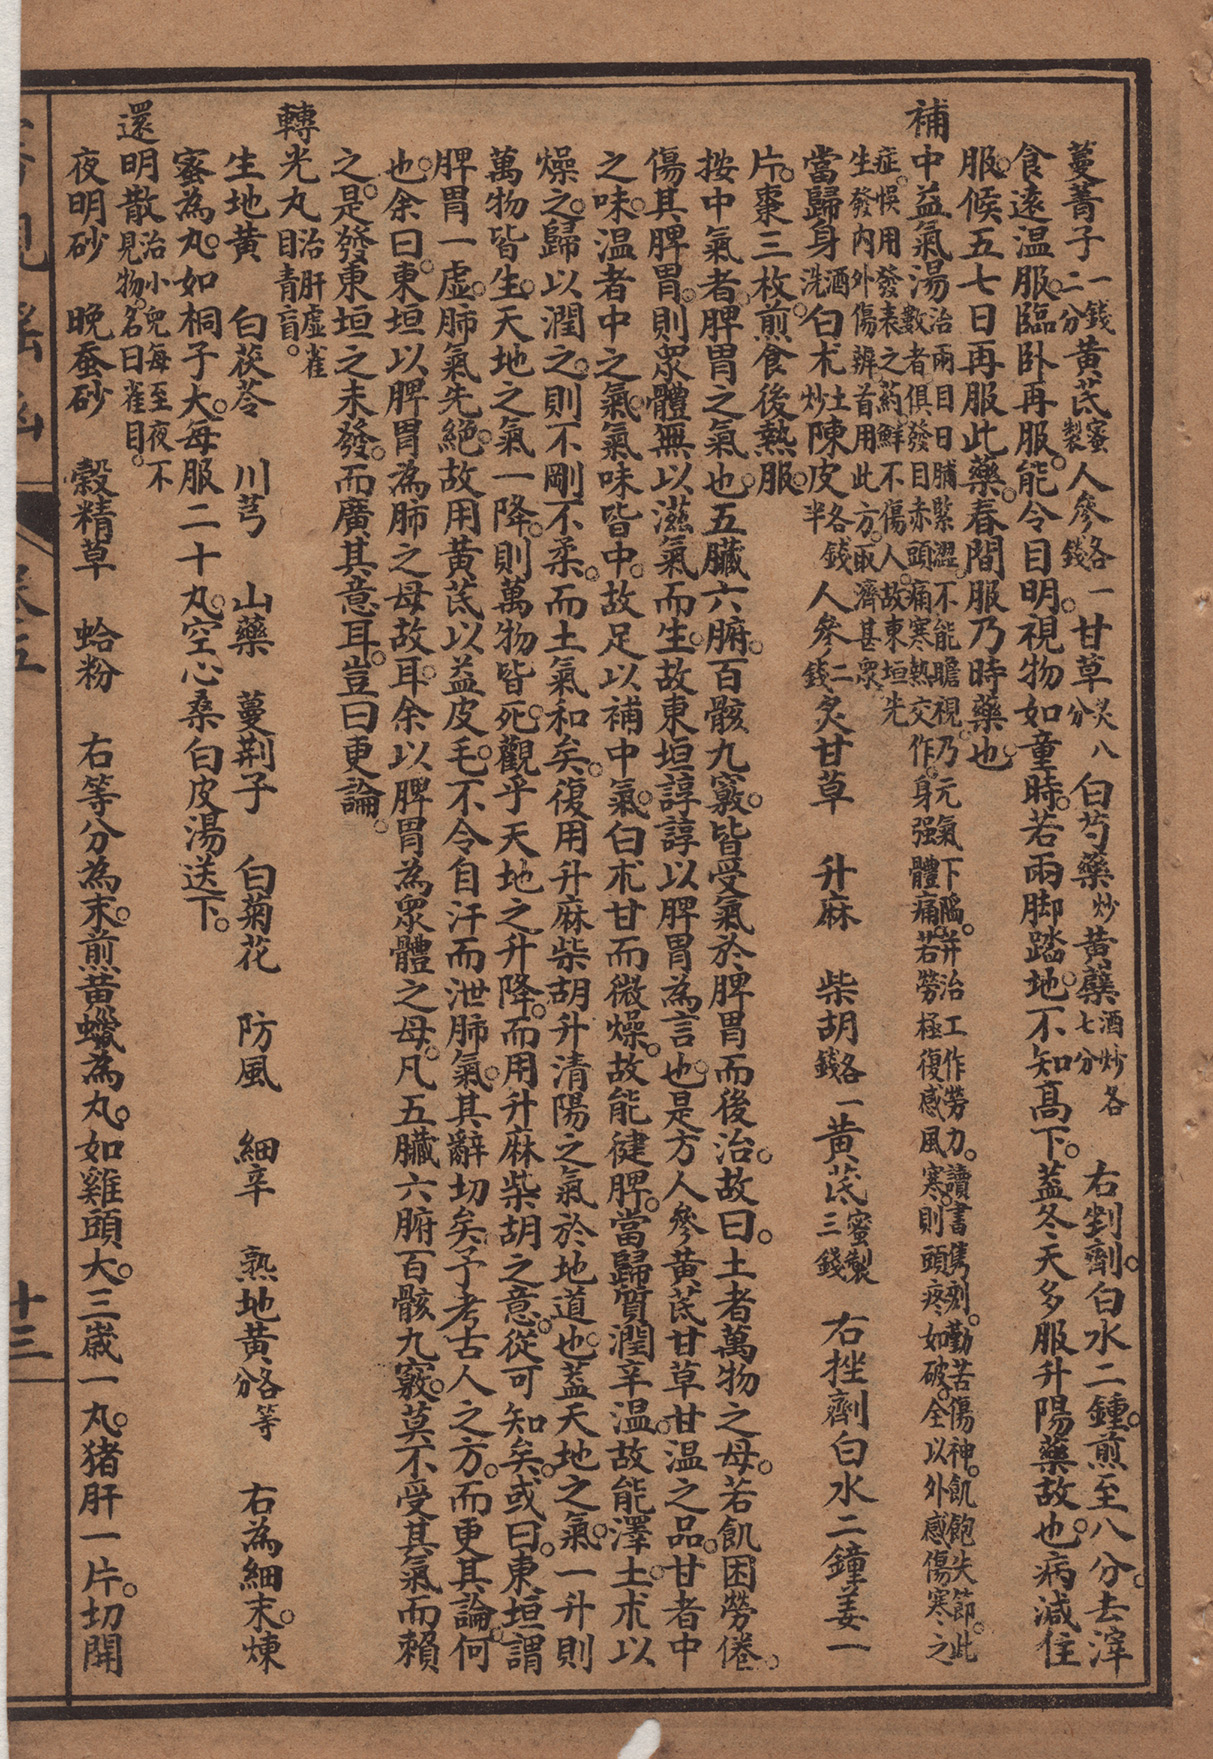 蔓菁子二分一錢黃芪蜜製人參各一錢甘草炙八分白芍藥炒黃蘗酒炒各七分右剉劑白水二鍾煎至八分去滓
食遠溫服臨卧再服能令目明視物如童時若兩脚踏地不知高下蓋冬天多服升陽藥故也病減住
服候五七日再服此藥春間服乃時藥也
補中益氣湯治兩目日脯緊澀不能瞻視乃元氣下陷并治工作勞力讀書雋刻勤苦傷神飢飽失節此
數者俱發目赤頭痛寒熱交作身强體痛若勞極復感風寒則頭疼如破全以外感傷寒之
症悞用發表之药鮮不傷人故東垣先
生發內外傷辨首用此方取濟甚衆
當歸身酒洗白朮土炒陳皮各錢半人參二錢炙甘草升麻柴胡各一錢黃芪蜜製三錢右挫劑白水二鐘姜一
片棗三枚煎食後熱服
按中氣者脾胃之氣也五臟六腑百骸九竅皆受氣於脾胃而後治故曰土者萬物之母若飢困勞倦
傷其脾胃則眾體無以滋氣而生故東垣諄諄以脾胃為言也是方人參黃芪甘草甘溫之品甘者中
之味溫者中之氣氣味皆中故足以補中氣白朮甘而微燥故能健脾當歸質潤辛溫故能澤土朮以
燥之歸以潤之則不剛不柔而土氣和矣復用升麻柴胡升清陽之氣於地道也蓋天地之氣一升則
萬物皆生天地之氣一降則萬物皆死觀乎天地之升降而用升麻柴胡之意從可知矣或曰東垣謂
脾胃一虛肺氣先絕故用黃芪以益皮毛不令自汗而泄肺氣其辭切矣予考古人之方而更其論何
也余曰東垣以脾胃為肺之母故耳余以脾胃為眾體之母凡五臟六腑百骸九竅莫不受其氣而賴
之是發東垣之未發而廣其意耳豈曰更論
轉光丸治肝虛雀目青盲
生地黃 白茯苓 川芎 山藥 蔓荊子 白菊花 防風 細辛 熟地黃各等分 右為細末煉
蜜為丸如桐子大每服二十丸空心桑白皮湯送下
還明散治小兒每至夜不見物名曰雀目
夜明砂 晚蚕砂 穀精草 蛤粉 右等分為末煎黃蠟為丸如雞頭大三歲一丸猪肝一片切開
卷五
十三